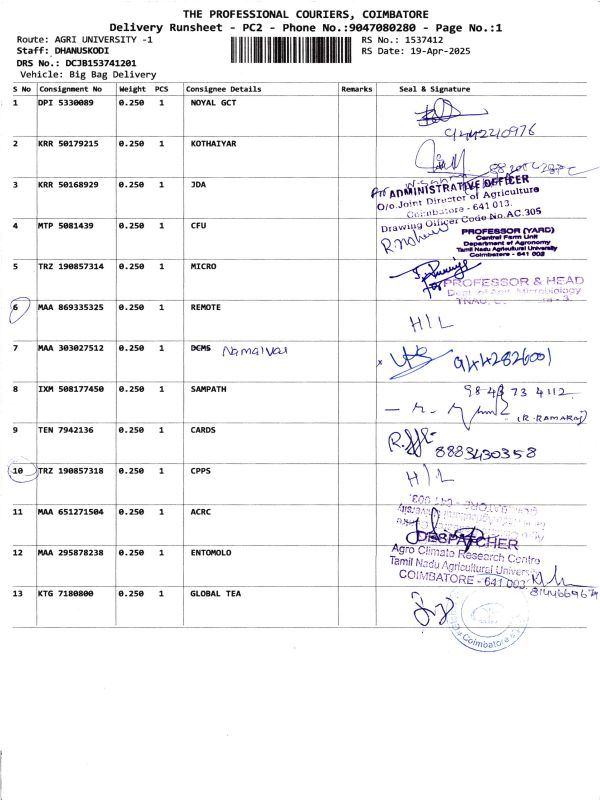 THE PROFESSIONAL COURIERS, COIMBATORE
Delivery Runsheet - PC2 - Phone No.:9047080280 - Page No.:1
Route: AGRI UNIVERSITY -1
RS No.: 1537412
Staff: DHANUSKODI
RS Date: 19-Apr-2025
DRS No.: DCJB153741201
Vehicle: Big Bag Delivery
S No Consignment No Weight PCS Consignee Details Remarks Seal & Signature
1 DPI 5330089 0.250 1 NOYAL GCT
9442240976
2 KRR 50179215 0.250 1 KOTHAIYAR
3 KRR 50168929 0.250 1 JDA
ADMINISTRATIVE OFFICER
O/o.Joint Director of Agriculture
Coimbatore - 641 013.
Drawing Officer Code No.AC.305
4 MTP 5081439 0.250 1 CFU
PROFESSOR (YARD)
Central Farm Unit
Department of Agronomy
Tamil Nadu Agricultural University
Coimbatore - 641 003
5 TRZ 190857314 0.250 1 MICRO
PROFESSOR & HEAD
Dept. of Agrl. Microbiology
6 MAA 869335325 0.250 1 REMOTE
H/L
7 MAA 303027512 0.250 1 DCMS Namalvar
9442826001
8 IXM 508177450 0.250 1 SAMPATH
98 43 73 4112
(R. RAMARAJ)
9 TEN 7942136 0.250 1 CARDS
8883430358
10 TRZ 190857318 0.250 1 CPPS
H/L
11 MAA 651271504 0.250 1 ACRC
DESPATCHER
Agro Climate Research Centre
Tamil Nadu Agricultural University
COIMBATORE - 641 003
12 MAA 295878238 0.250 1 ENTOMOLO
13 KTG 7180800 0.250 1 GLOBAL TEA
Coimbatore